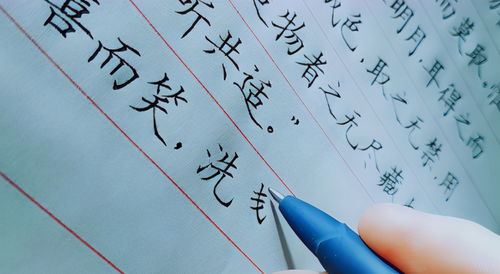 明月，耳得之而
色，取之无禁，用
造物者之无尽藏
所共适。”
喜而笑，洗